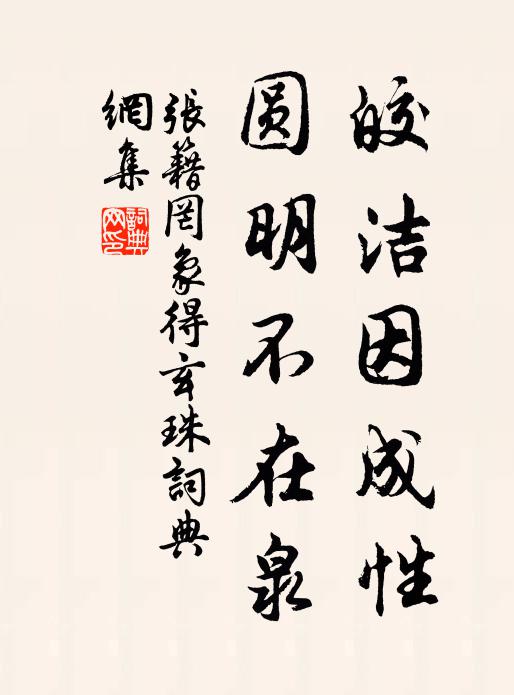 皎洁因成性
圆明不在泉
張籍罔象得玄珠詞典
網集
詞典网印